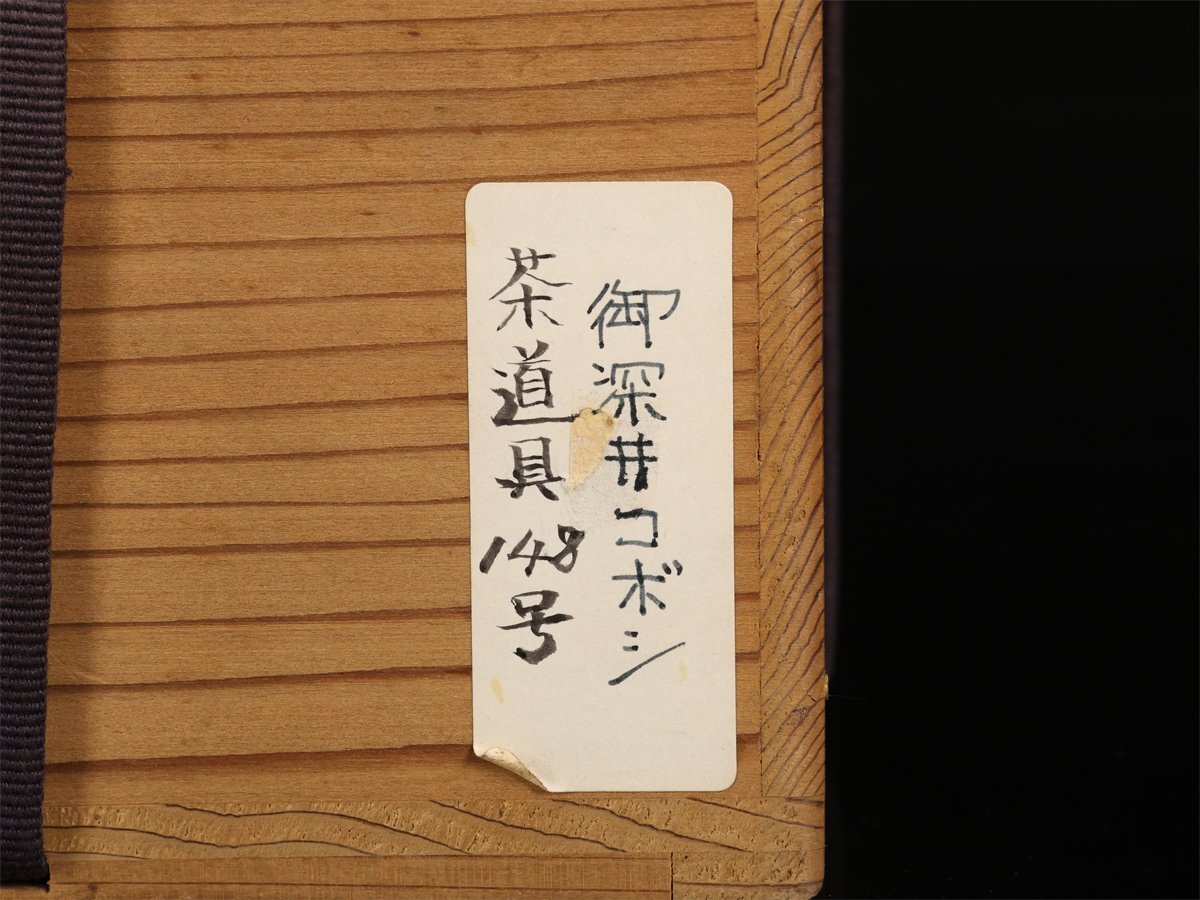 御深井コボシ
茶道具148号